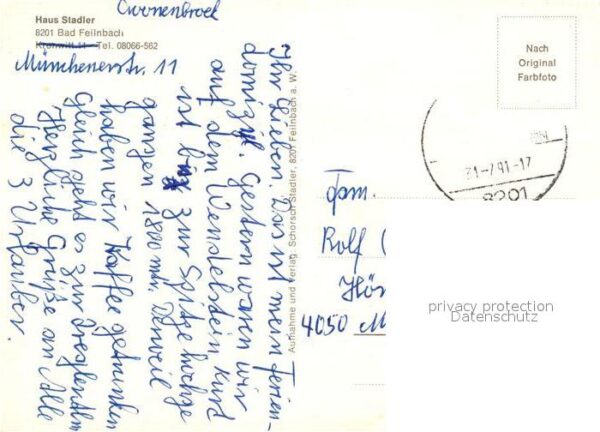 Cwonenbroek
Haus Stadler
8201 Bad Feilnbach
Kronwitt 11 Tel. 08066-562
Münchenerstr. 11
Ihr Lieben! Das ist mein Ferien-
domizil. Gestern waren wir
auf dem Wendelstein Kurt
ist bis zur Spitze hochge
gangen 1800 mtr. Derweil
haben wir Kaffee getrunken
Gleich geht es zur Tregleralm
Herzliche Grüße an Alle
die 3 Urlauber.
Aufnahme und Verlag Schorsch Stadler, 8201 Feilnbach a. W.
Nach
Original
Farbfoto
31-7.91-17
8201
Fam.
Rolf
Hör
4050 M
privacy protection
Datenschutz